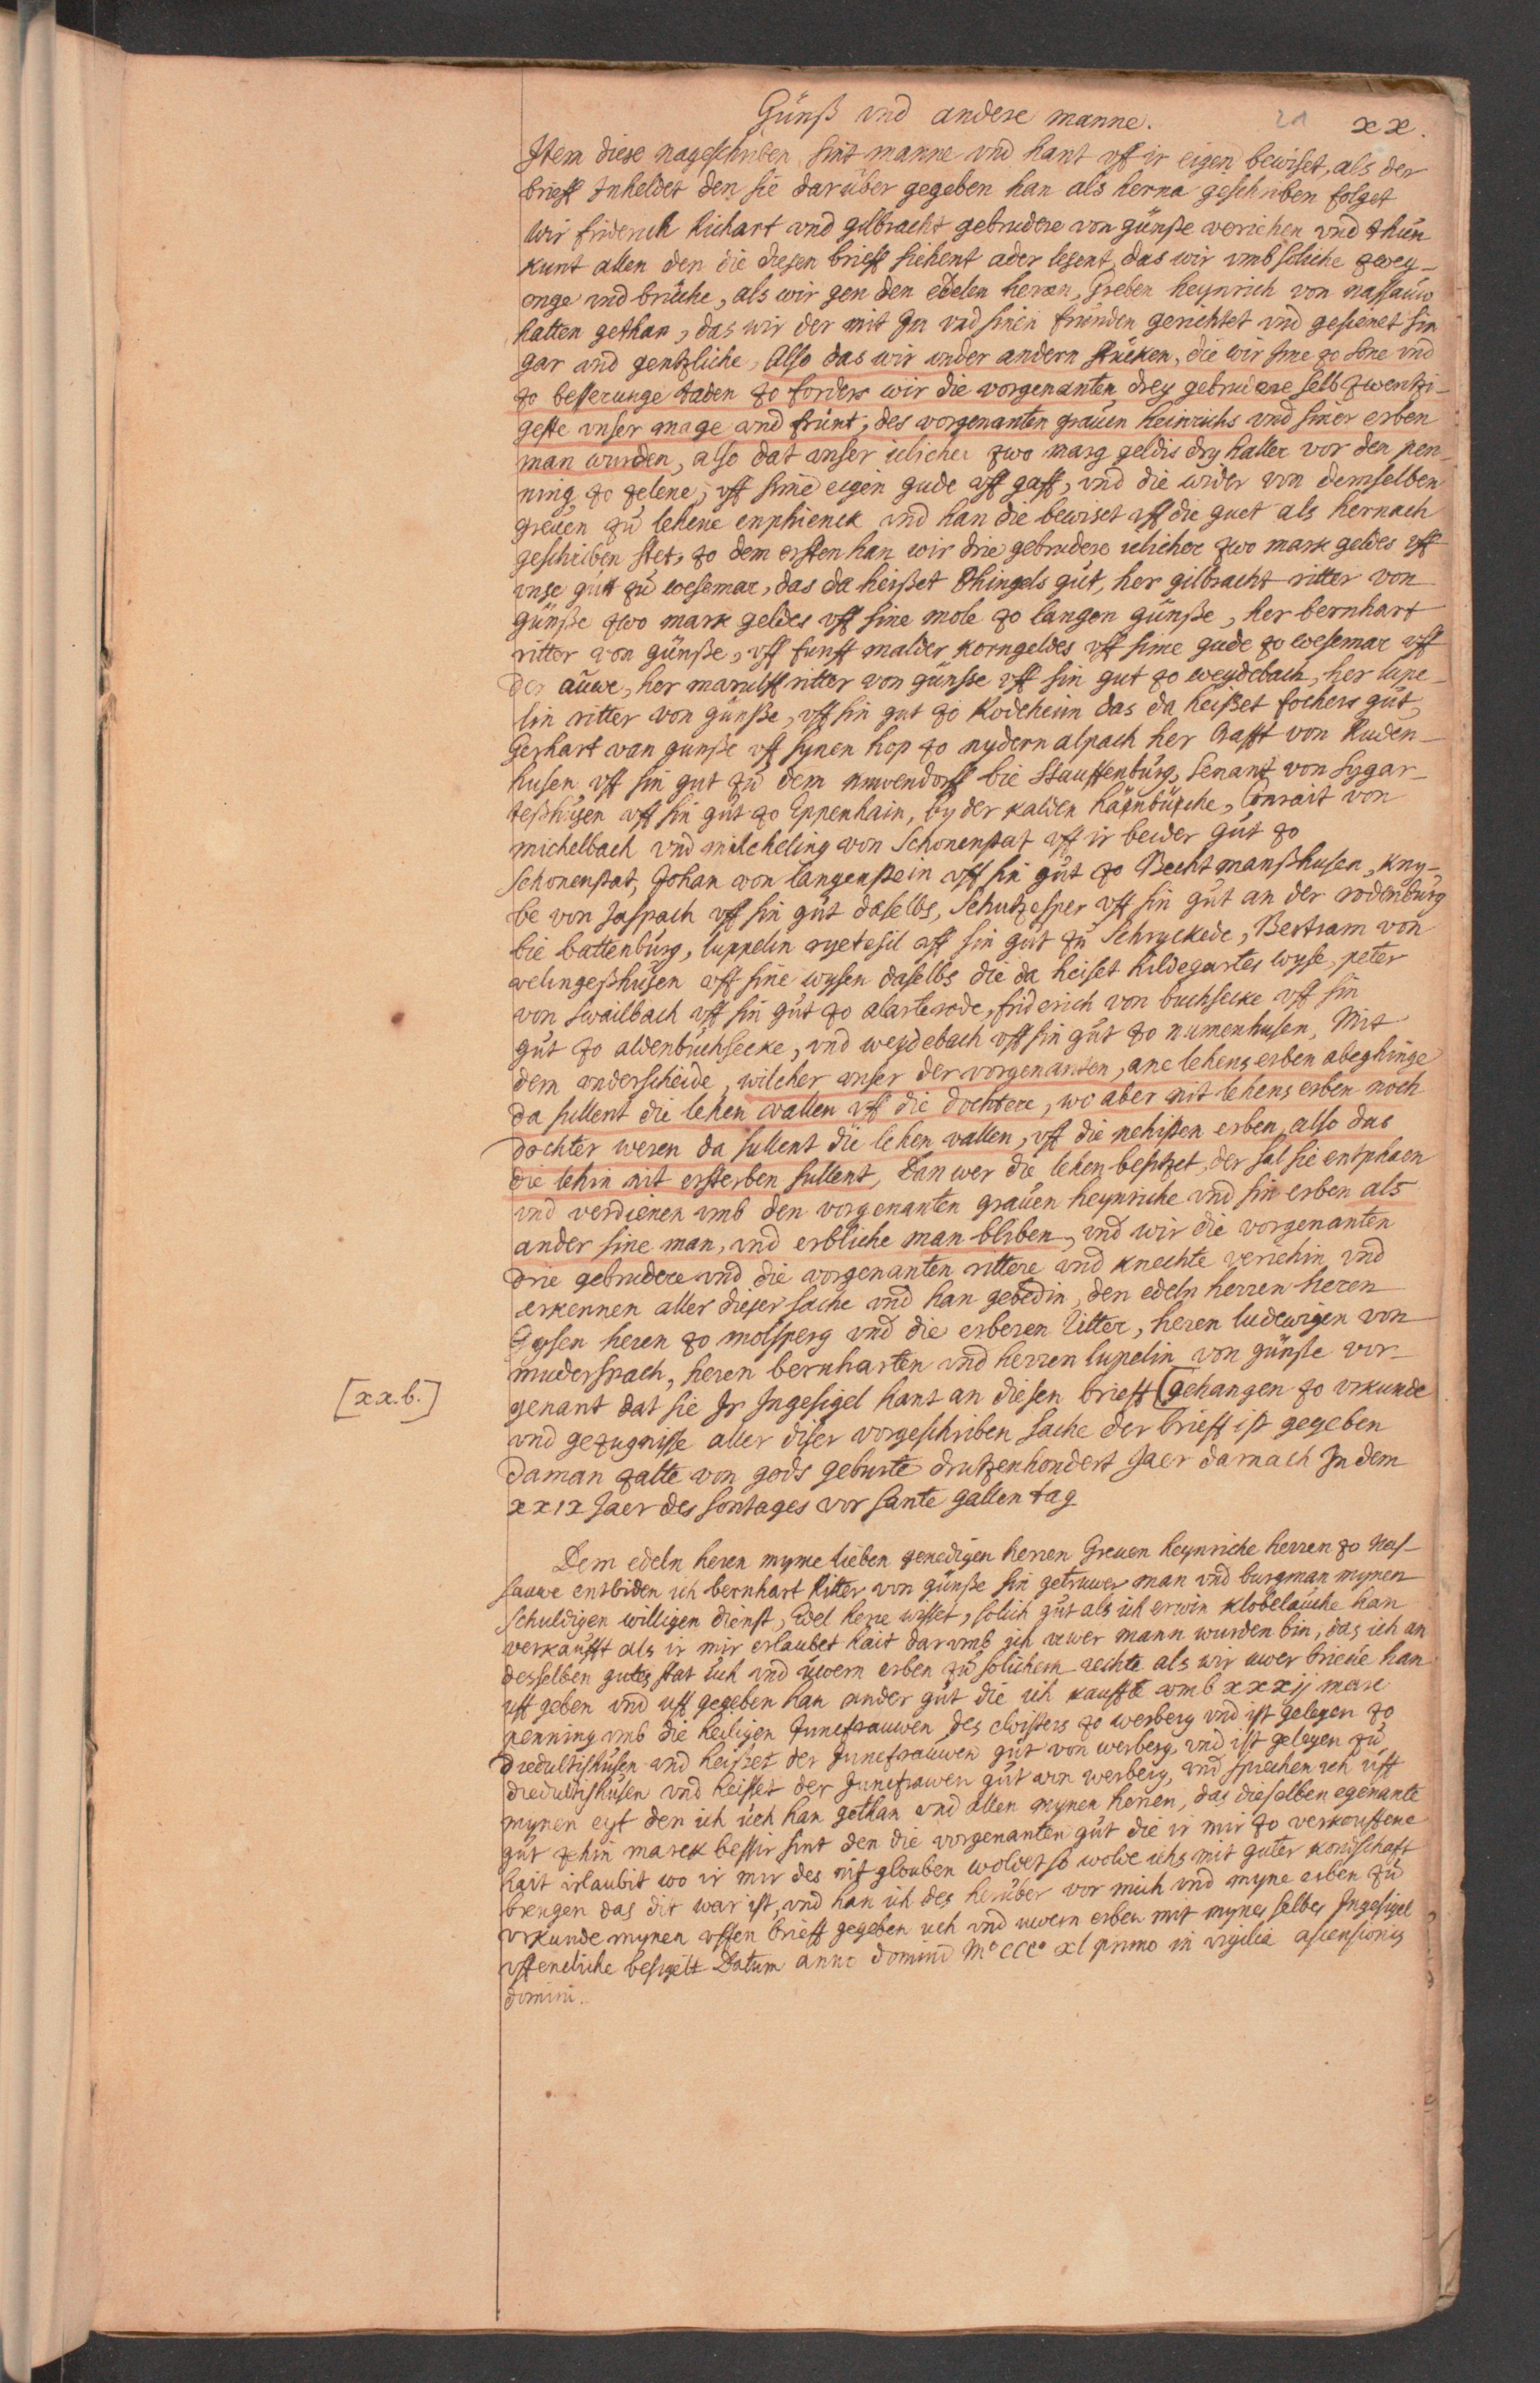 Günß vnd andere manne. 21 xx.
Jtem diese nageschriben sint manne vnd hant vff ir eigen bewiset, als der
brieff Jnheldet den sie darüber gegeben han als herna geschriben folget
Wir friderich Richart vnd gilbracht gebrudere von günße veriehen vnd thün
kunt allen den die diesen brieff siehent ader lesent, das wir vmb soliche zwey-
onge vnd brüche, als wir gen den edelen herren, Greben heynrich von nassauw
hatten gethan, das wir der mit Jm vnd sinen fründen gerichtet vnd gesienet sin
gar vnd gentzliche, Also das wir vnder andern stücken, die wir Jme zo sone vnd
zo besserunge taden zo forders wir die vorgenanten drey gebrudere selb zwentzi-
geste vnser mage vnd frünt, des vorgenanten grauen heinrichs vnd siner erben
man wurden, also dat vnser iclicher zwo marg geldis dry haller vor den pen-
ning zo zelene, vff sine eigen gude vff gaff, vnd die wider von demselben
greuen zü lehene enphienck vnd han die bewiset vff die guet als hernach
geschriben stet, zo dem ersten han wir drie gebrudere iclicher zwo mark geldes vff
vnse gütt zü wesemar, das da heißet Thingels güt, her gilbracht ritter von
günße zwo mark geldes vff sine mole zo langen günße, her bernhart
ritter von günße, vff funff malder korngeldes vff sime gude zo wesemar vff
der aüwe, her marulff ritter von günsse vff sin gut zo weydebach, her lupe-
lin ritter von günße, vff sin gut zo Rodeheim das da heißet fochers güt,
Gerhart van gunße vff synen hop zo nydern alpach her Crafft von Ruden-
husen vff sin gut zü dem nuwendorff bie Stauffenbürg, Senant von Sygar-
teßhüsen vff sin güt zo Eppenhain, by der kalden hägnbüche, Conrait von
michelbach vnd milcheling von Schonenstat vff ir beider güt zo
Schonenstat, Johan von langenstein vff sin güt zo Bechtmanßhusen, kny-
be von Jospach vff sin güt daselbs, Schutzesper vff sin güt an der rodenburg
bie battenbürg, luppelin ryetesil vff sin güt zü Schryckede, Bertram von
welingeßhüsen vff sine wysen daselbs die da heiset hildegartes wyse, peter
von swailbach vff sin güt zo alarterode, friderich von buchsecke vff sin
güt zo aldenbüchsecke, vnd weydebach vff sin güt zo numenhusen, Mit
dem anderscheide, wilcher vnser der vorgenanten, ane lehens erben abeghinge
da sullent die lehen vallen vff die dochtere, wo aber nit lehens erben noch
dochter weren da sullent die lehen vallen, vff die nehisten erben, also das
die lehin nit ersterben sullent, Dan wer die lehen besitzet, der sal sie entphaen
vnd verdienen vmb den vorgenanten grauen heynriche vnd sin erben als
ander sine man, vnd erbliche man bliben, vnd wir die vorgenanten
drie gebrudere vnd die vorgenanten rittere vnd knechte veriehin vnd
erkennen aller dieser sache vnd han gebedin, den edeln herren heren
Gysen heren zo molsperg vnd die erberen Ritter, heren ludewigen von
muderspach, heren bernharten vnd herren lupelin von günße vor-
genant dat sie Jr Jngesigel hant an diesen brieff [gehangen zo vrkunde
[xx.b.]
vnd gezugnisse aller diser vorgeschriben sache der brieff ist gegeben
Daman zalte von gods geburte drutzenhondert Jaer darnach Jn dem
xxix Jaer des sontages vor sante gallen tag
Dem edeln heren myme lieben genedigen herren Greuen heynriche herren zo Nas-
sauwe entbiden ich bernhart Ritter von günße sin getruwer man vnd burgman mynen
schuldigen willigen dienst, Edel herre wisset, solich güt als ich erwin klobelauche han
verkaufft als ir mir erlaubet hait darumb ich uwer mann wurden bin, das ich an
desselben gutes stat üch vnd üwern erben zü solichem rechte als wir uwer brieue han
uff geben vnd uff gegeben han ander güt die ich kauffte vmb xxxij marc
penning vmb die heiligen Juncfrauwen des cloisters zo werberg vnd ist gelegen zo
Diedultishüsen vnd heisset der Juncfrauwen güt von werberg, vnd ist gelegen zü
diedultishüsen vnd heisset der Juncfrawen güt von werberg, vnd sprechen ich uff
mynen eyt den ich üch han gethan vnd allen mynen herren, das dieselben egenante
güt zehin marck bessir sint den die vorgenanten güt die ir mir zo verkouffene
hait irlaubit wo ir mir des nit glouben woldet so wolde ichs mit guter kontschaft
brengen das dit war ist, vnd han ich des herüber vor mich vnd myne erben zü
vrkunde mynen uffen brieff gegeben uch vnd uwern erben mit mynes selbes Jngesigel
uffenliche besigelt Datum anno domini M° CCC° xl primo in vigilia ascensionis
domini.